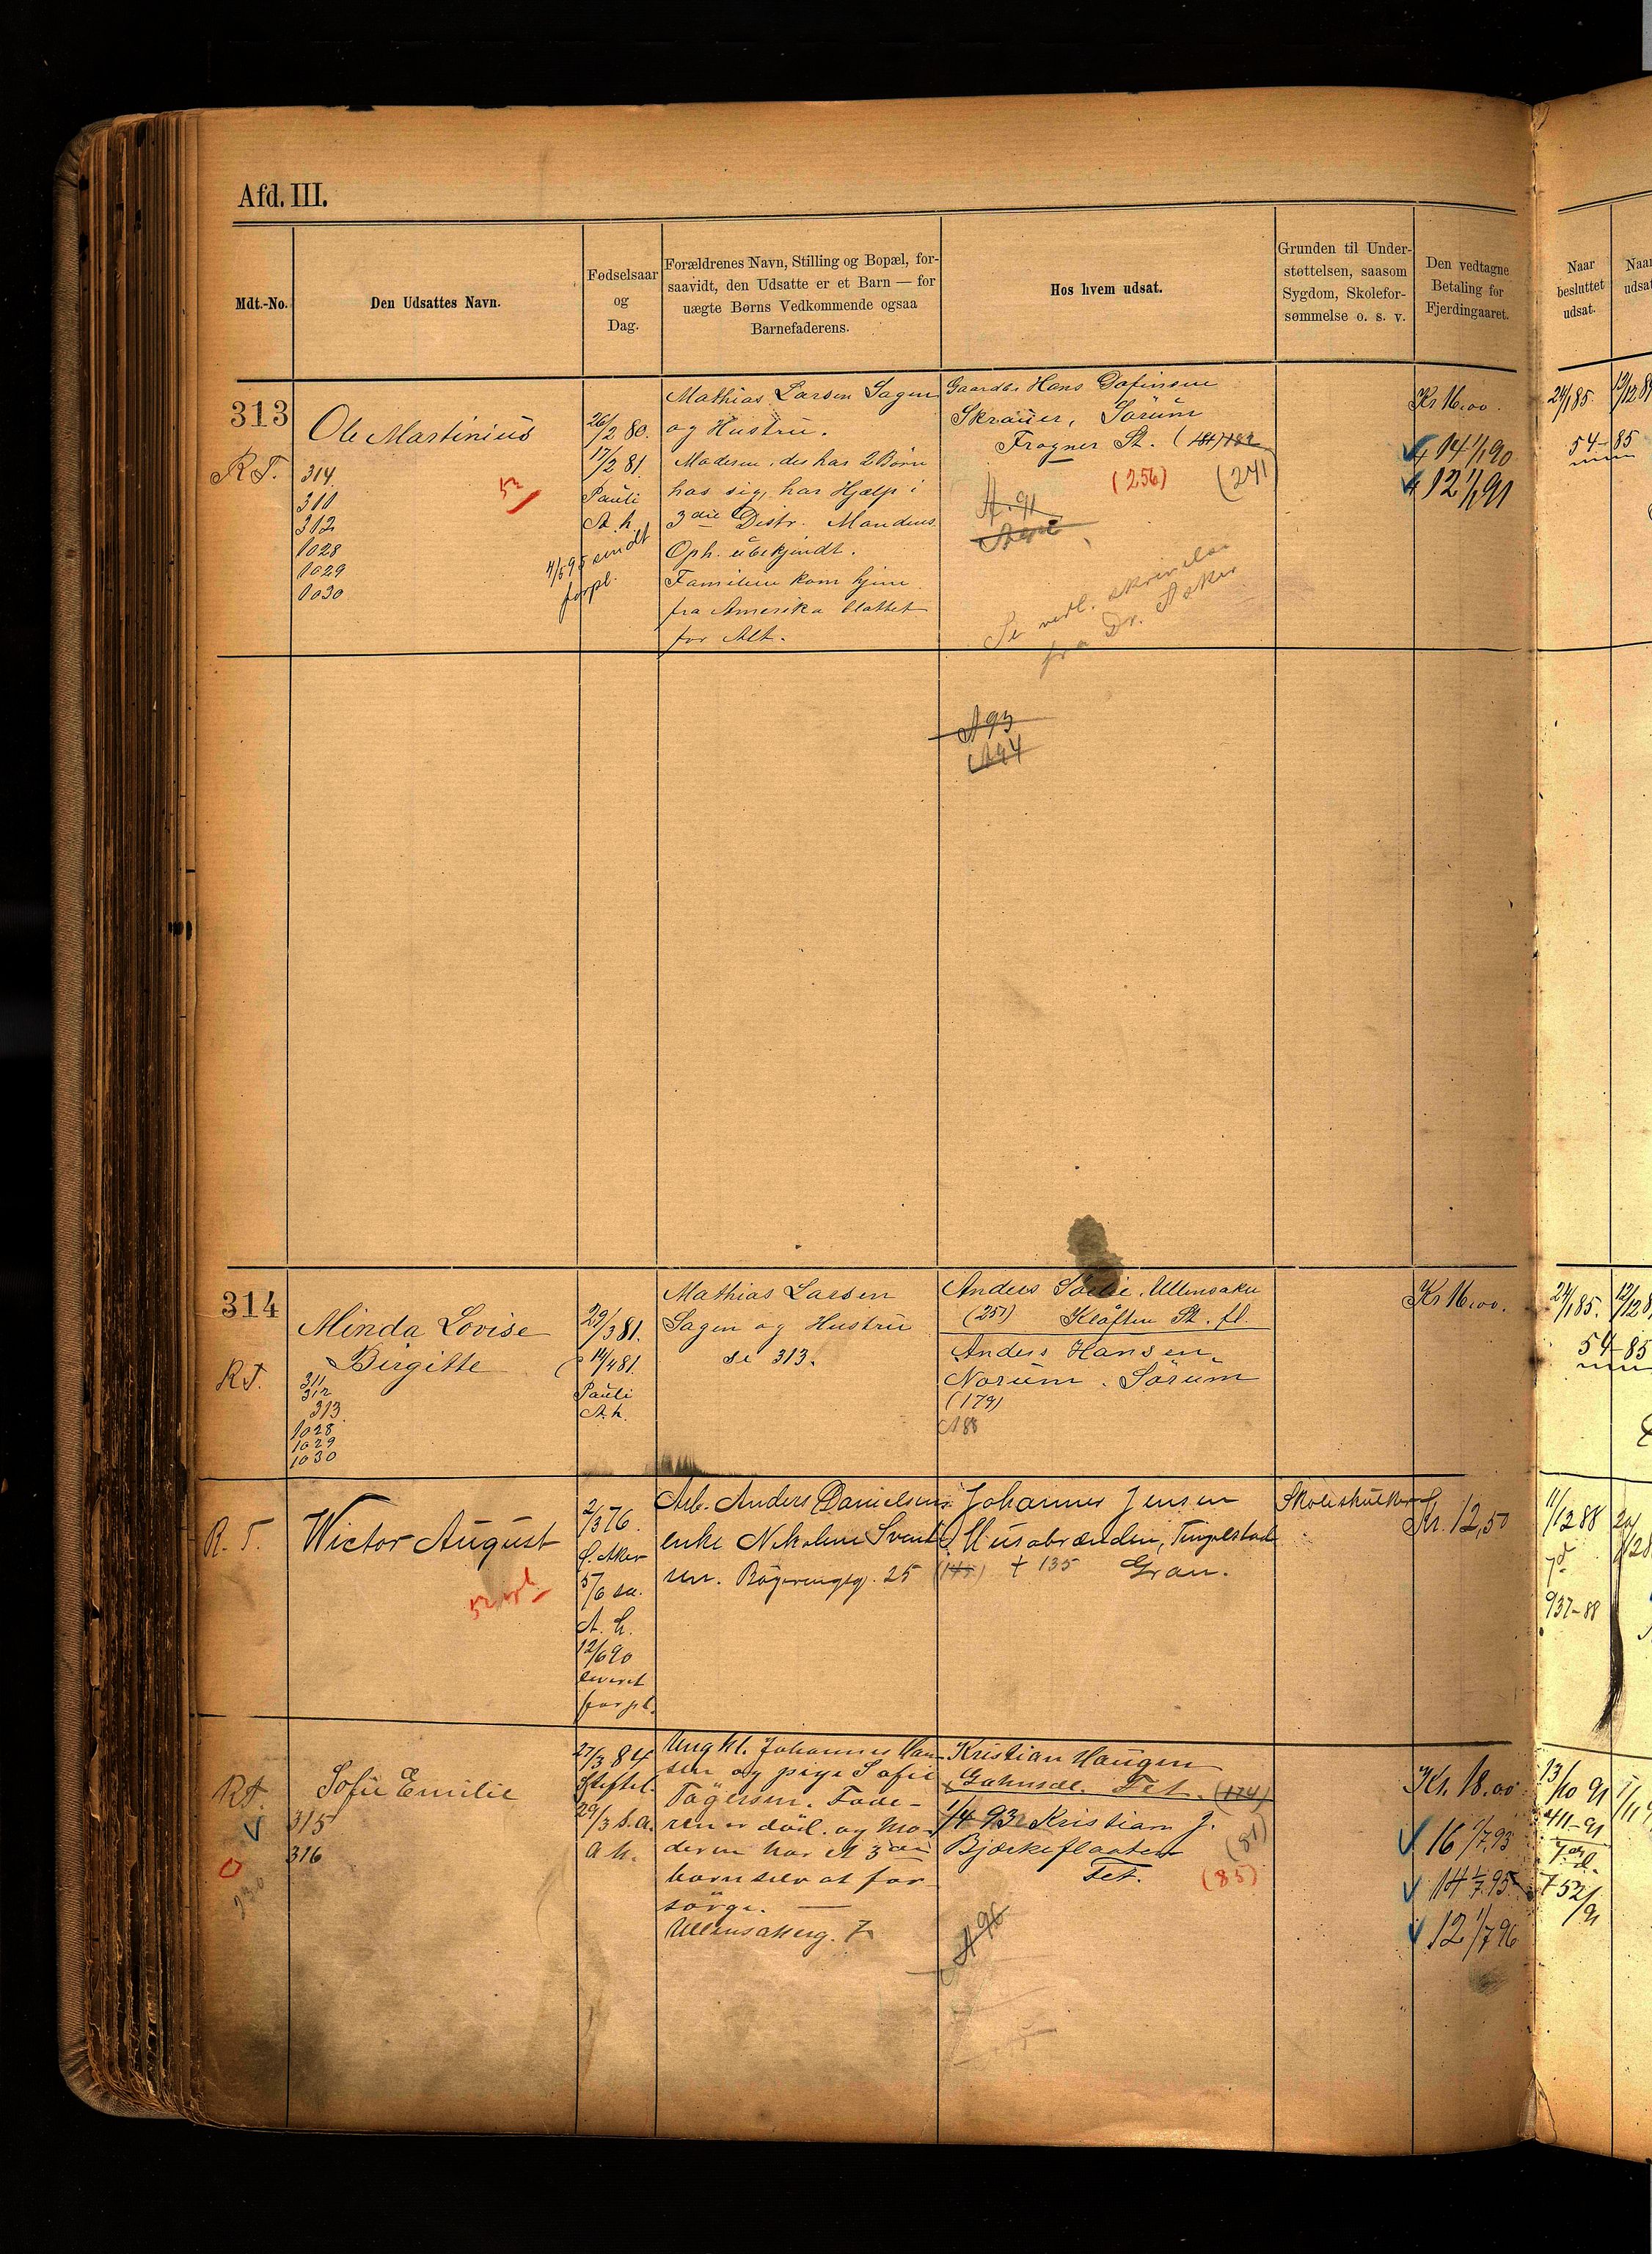 Afd. III.
Mdt.-No.
Den Udsattes Navn.
Fødselsaar
og
Dag.
Forældrenes Navn, Stilling og Bopæl, for-
saavidt, den Udsatte er et Barn — for
uægte Børns Vedkommende ogsaa
Barnefaderens.
Hos hvem udsat.
Grunden til Under-
støttelsen, saasom
Sygdom, Skolefor-
sømmelse o. s. v.
Den vedtagne
Betaling for
Fjerdingaaret.
Naar
besluttet
udsat.
Naar
udsat
313
R.T.
Ole Martinius
314.
311
312
1028
1029
1030
52
26/2 80.
17/2 81.
Pauli
A. k.
4/5 95 sendt
forpl.
Mathias Larsen Sagen
og Hustru.
Moderen, der har 2 Børn
hos sig, har Hjælp i
3die Distr. Mandens
Oph. ubekjendt.
Familien kom hjem
fra Amerika blottet
for Alt.
Gaardbr. Hans
Skrauer, Sørum
Frogner St. (181) 182
(256) (241)
A. 91
Se vedl. skrivelse
fra Dr. Asker
A 93
A 94
Kr 16,00.
14 1/1 90
12 1/1 91
24/1 85.
54-85
314
R.T.
Minda Lovise
Birgitte
311
312
313
1028
1029
1030
29/3 81.
14/4 81.
Pauli
A. k.
Mathias Larsen
Sagen og Hustru
se 313.
Anders Sørlie, Ullensaker
(257) Kløften St. fl.
Anders Hansen,
Norum, Sørum
(179)
A 88
Kr 16,00.
24/1 85.
54-85
R. T.
Wictor August
2/3 76.
Ø. Aker
5/6 sa.
A. k.
12/6 90
leveret
forpl.
Arb. Anders Danielsens
enke Nikoline Svend-
sen. Bøgerengsg. 25
Johannes Jensen
Husabrænden, Tingelstad
+ 135 Gran.
Skoleskulker
Kr. 12,50
11/12 88
937-88
R.T.
Sofie Emilie
315
316
27/3 84
Stiftel.
29/3 s.a.
A k.
Ungkl. Johannes Han-
sen og pige Sofie
Tøgersen. Fade-
ren er død. og Mo-
deren har et 3die
barn selv at for-
sørge. —
Ullensakerg. 7
Kristian Haugen
Fet. (174)
1/4 93 Kristian J.
Bjørkeflaaten (81)
Fet. (85)
A 96
Kr. 18.00
16 1/7 93
14 1/7 95
12 1/7 96
13/10 91
411-91
+ 52/91